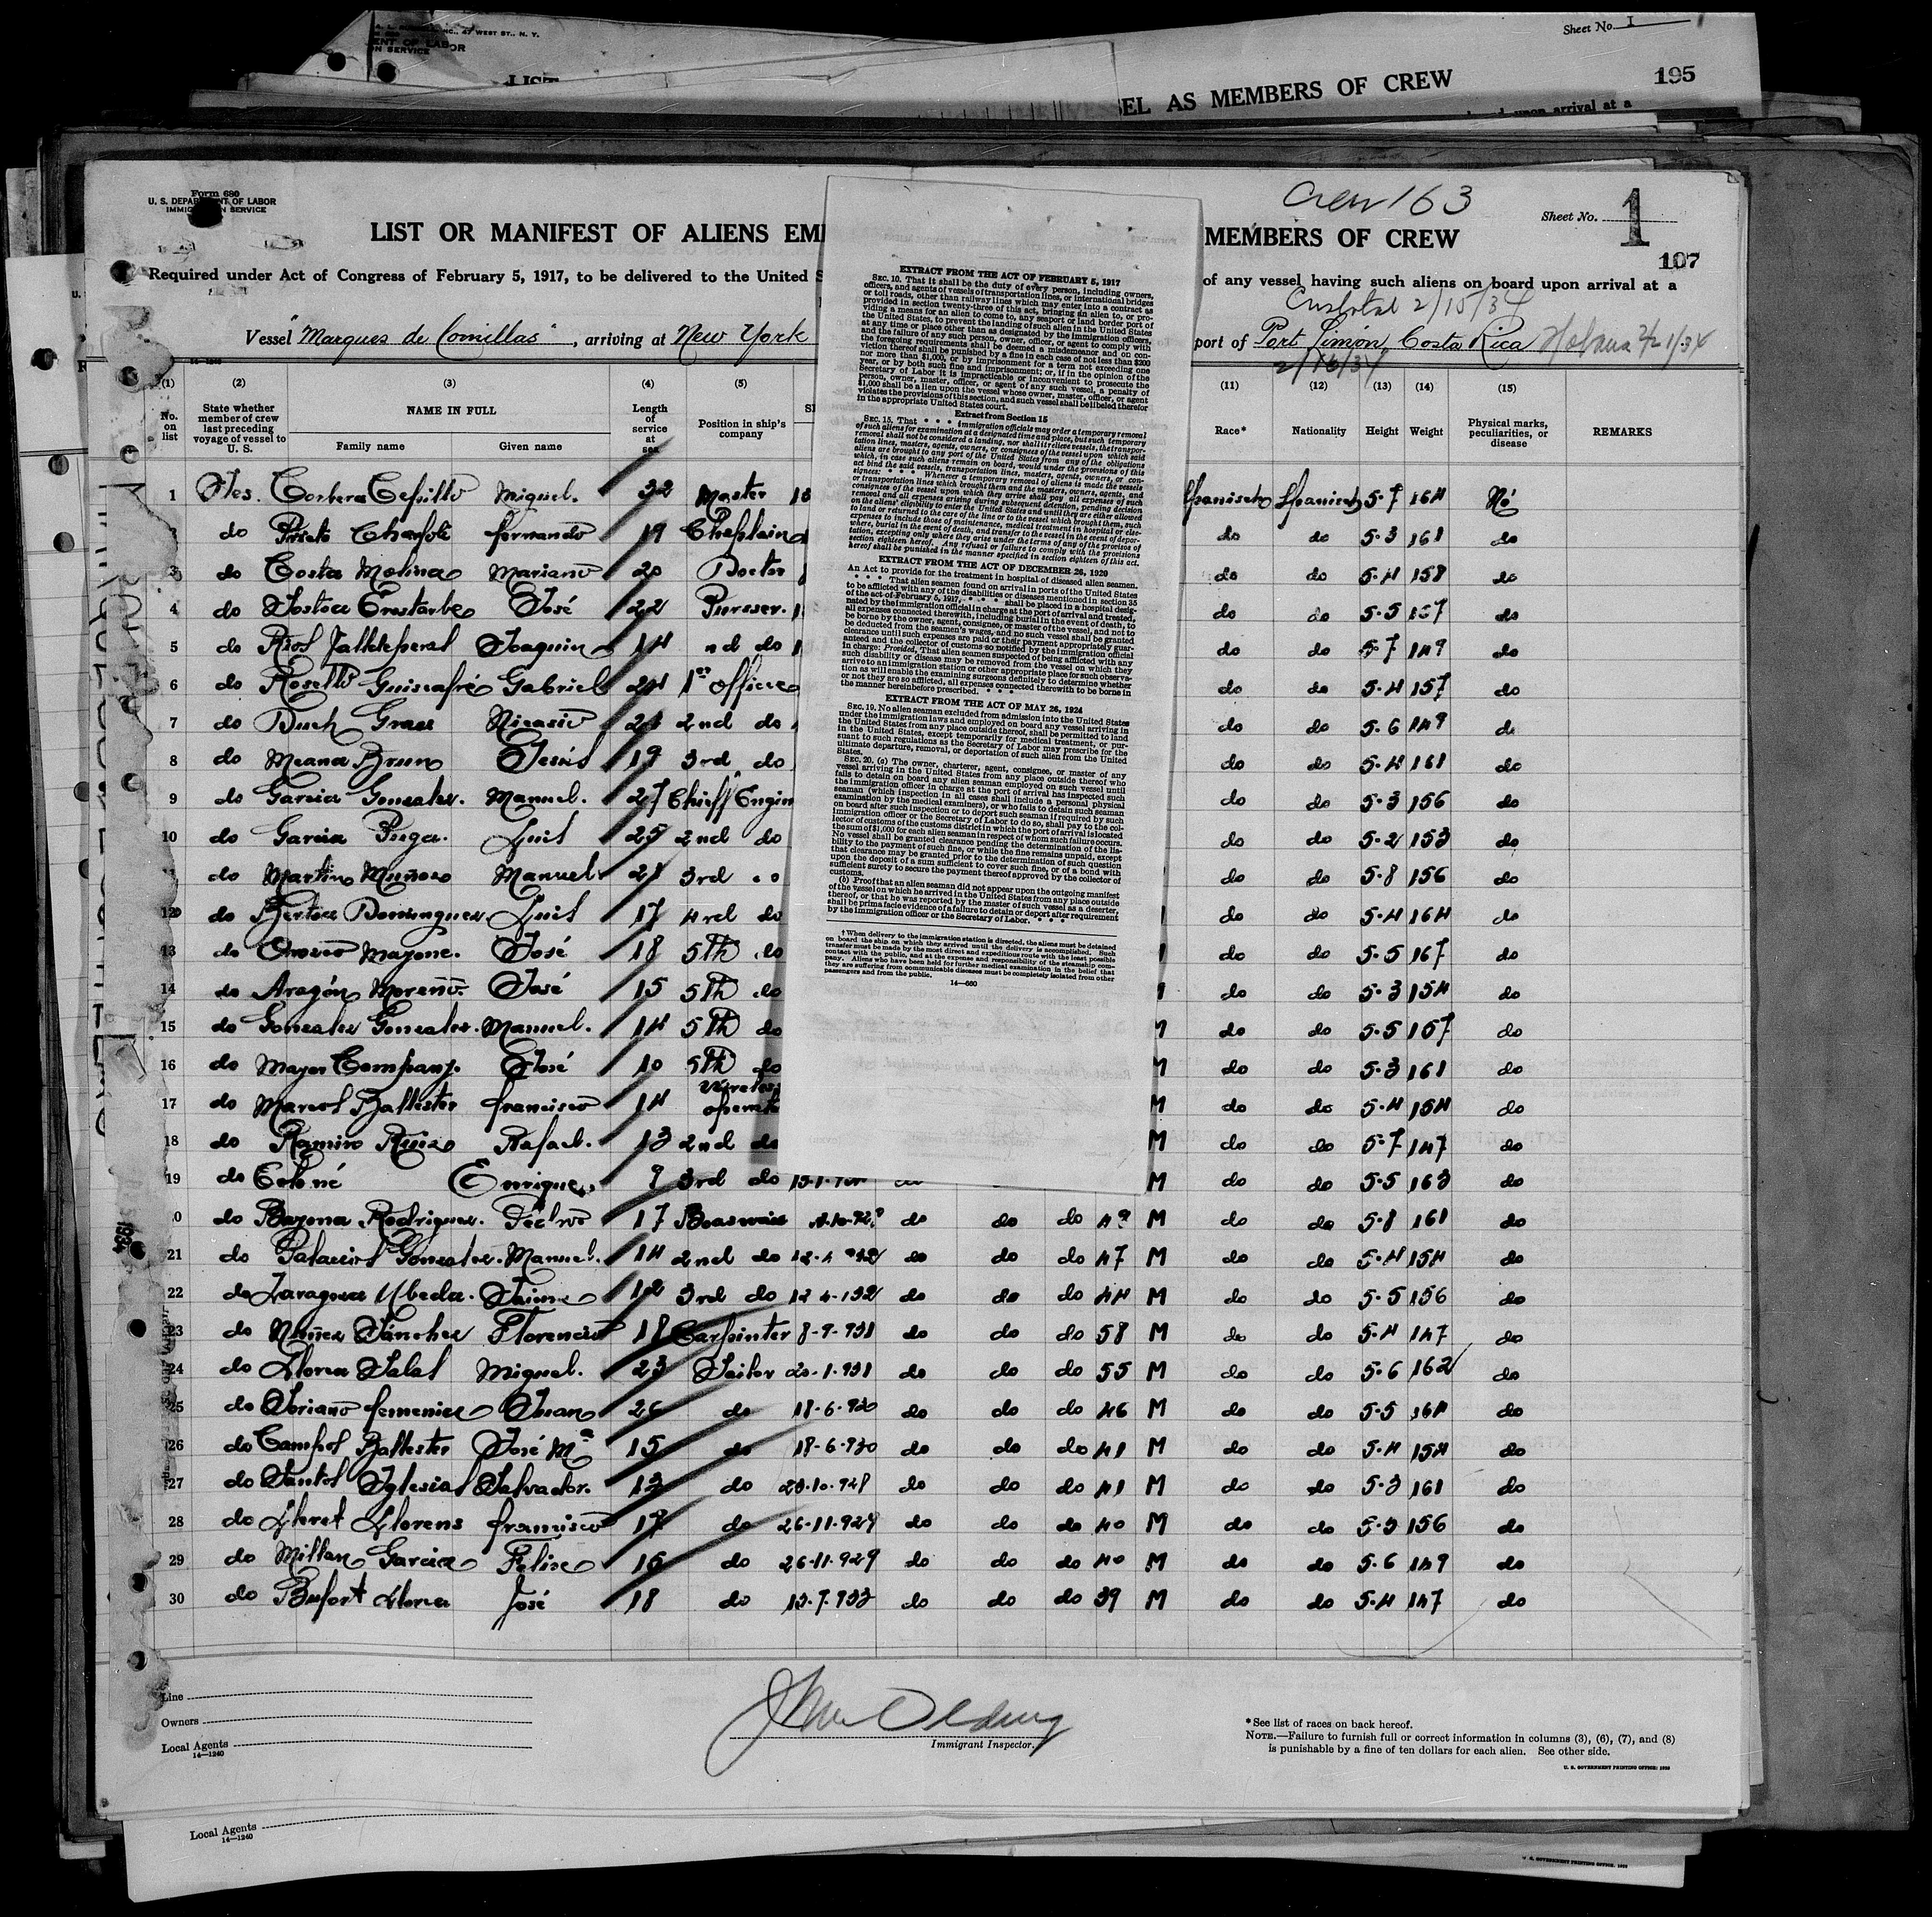 A. L. NC., 47 WEST ST., N. Y.
ENT OF LABOR
N SERVICE
Sheet No. 1
LIST
EL AS MEMBERS OF CREW
195
upon arrival at a
Form 680
U. S. DEPARTMENT OF LABOR
IMMIG N SERVICE
Crew 163
Sheet No. 1
LIST OR MANIFEST OF ALIENS EM
MEMBERS OF CREW
107
Required under Act of Congress of February 5, 1917, to be delivered to the United S
of any vessel having such aliens on board upon arrival at a
Cristobal 2/15/34
Vessel "Marques de Comillas", arriving at New York
port of Port Limón, Costa Rica Habana
2/16/34
(1) (2) (3) (4) (5) (11) (12) (13) (14) (15)
No. on list
State whether member of crew last preceding voyage of vessel to U. S.
NAME IN FULL
Family name Given name
Length of service at sea
Position in ship's company
Race* Nationality Height Weight
Physical marks, peculiarities, or disease
REMARKS
1 Yes. Corbera Cepillo Miguel. 32 Master Spanish Spanish 5-7 164 No
do Prieto Fernando 19 Chaplain do do 5-3 161 do
3 do Costa Molina Mariano 20 Doctor do do 5-4 158 do
4 do José 22 Pursser. do do 5-5 157 do
5 do Rios Joaquin 14 nd do do do 5-7 149 do
6 do Roselló Guiscafré Gabriel 24 1st officer do do 5-4 157 do
7 do Nicasio 2nd do do do 5-6 149 do
8 do Meana Brun Jesús 19 3rd do do do 5-4 161 do
9 do Garcia Gonzalez. Manuel. 27 Chieff Engin do do 5-3 156 do
10 do Garcia Puga. Luis 25 2nd do do do 5-2 153 do
do Martin Muñoz Manuel 3rd do do 5-8 156 do
12 do Dominguez Luis 17 4rd do do do 5-4 164 do
13 do Mayone. José 18 5th do do do 5-5 167 do
14 do Aragón Moreno. José 15 5th do do do 5-3 154 do
15 do Gonzalez Gonzalez. Manuel. 14 5th do M do do 5-5 157 do
16 do Mayor Company. José 10 5th do M do do 5-3 161 do
17 do Marcos Ballester Francisco 14 M do do 5-4 154 do
18 do Ramiro Ruiz Rafael. 13 2nd do M do do 5-7 147 do
19 do Enrique 9 3rd do M do do 5-5 163 do
0 do Bayona Rodriguez. Pedro 17 do do do M do do 5-8 161 do
21 do Palacios Gonzalez. Manuel. 14 2nd do do do do 47 M do do 5-4 154 do
22 do Zaragoza Ubeda. Jaime 12 3rd do do do do 44 M do do 5-5 156 do
23 do Nuñez Sánchez Florencio 18 Carpinter 8-9-931 do do do 58 M do do 5-4 147 do
24 do Llorca Salas Miguel. 23 Sailor 20-1-931 do do do 55 M do do 5-6 162 do
25 do Soriano Femenia Juan 26 do 18-6-930 do do do 46 M do do 5-5 164 do
26 do Campos Ballester José Mª 15 do 18-6-930 do do do 41 M do do 5-4 154 do
27 do Santos Iglesias Salvador. 13 do do do do 41 M do do 5-3 161 do
28 do Lloret Llorens Francisco 17 do 26-11-929 do do do 40 M do do 156 do
29 do Millan Garcia Felix 16 do 26-11-929 do do do 40 M do do 5-6 149 do
30 do Bufort Llorca José 18 do 13-9-933 do do do 39 M do do 5-4 147 do
EXTRACT FROM THE ACT OF FEBRUARY 5, 1917
SEC. 10. That it shall be the duty of every person, including owners,
officers, and agents of vessels of transportation lines, or international bridges
or toll roads, other than railway lines which may enter into a contract as
provided in section twenty-three of this act, bringing an alien to, or pro-
viding a means for an alien to come to, any seaport or land border port of
the United States, to prevent the landing of such alien in the United States
at any time or place other than as designated by the immigration officers,
and the failure of any such person, owner, officer, or agent to comply with
the foregoing requirements shall be deemed a misdemeanor and on con-
viction thereof shall be punished by a fine in each case of not less than $200
nor more than $1,000, or by imprisonment for a term not exceeding one
year, or by both such fine and imprisonment; or, if in the opinion of the
Secretary of Labor it is impracticable or inconvenient to prosecute the
person, owner, master, officer, or agent of any such vessel, a penalty of
$1,000 shall be a lien upon the vessel whose owner, master, officer, or agent
violates the provisions of this section, and such vessel shall be libeled therefor
in the appropriate United States court.
Extract from Section 15
SEC. 15. That * * * Immigration officials may order a temporary removal
of such aliens for examination at a designated time and place, but such temporary
removal shall not be considered a landing, nor shall it relieve vessels, the transpor-
tation lines, masters, agents, owners, or consignees of the vessel upon which said
aliens are brought to any port of the United States from any of the obligations
which, in case such aliens remain on board, would under the provisions of this
act bind the said vessels, transportation lines, masters, agents, owners, or con-
signees: * * * Whenever a temporary removal of aliens is made the vessels
or transportation lines which brought them and the masters, owners, agents, and
consignees of the vessel upon which they arrive shall pay all expenses of such
removal and all expenses arising during subsequent detention, pending decision
on the aliens' eligibility to enter the United States and until they are either allowed
to land or returned to the care of the line or to the vessel which brought them, such
expenses to include those of maintenance, medical treatment in hospital or else-
where, burial in the event of death, and transfer to the vessel in the event of depor-
tation, excepting only where they arise under the terms of any of the provisos of
section eighteen hereof. Any refusal or failure to comply with the provisions
hereof shall be punished in the manner specified in section eighteen of this act.
EXTRACT FROM THE ACT OF DECEMBER 26, 1920
An Act to provide for the treatment in hospital of diseased alien seamen.
* * * That alien seamen found on arrival in ports of the United States
to be afflicted with any of the disabilities or diseases mentioned in section 35
of the act of February 5, 1917, * * * shall be placed in a hospital desig-
nated by the immigration official in charge at the port of arrival and treated,
all expenses connected therewith, including burial in the event of death, to
be borne by the owner, agent, consignee, or master of the vessel, and not to
be deducted from the seamen's wages, and no such vessel shall be granted
clearance until such expenses are paid or their payment appropriately guar-
anteed and the collector of customs so notified by the immigration official
in charge: Provided, That alien seamen suspected of being afflicted with any
such disability or disease may be removed from the vessel on which they
arrive to an immigration station or other appropriate place for such observa-
tion as will enable the examining surgeons definitely to determine whether
or not they are so afflicted, all expenses connected therewith to be borne in
the manner hereinbefore prescribed. * * *
EXTRACT FROM THE ACT OF MAY 26, 1924
SEC. 19. No alien seaman excluded from admission into the United States
under the immigration laws and employed on board any vessel arriving in
the United States from any place outside thereof, shall be permitted to land
in the United States, except temporarily for medical treatment, or pur-
suant to such regulations as the Secretary of Labor may prescribe for the
ultimate departure, removal, or deportation of such alien from the United
States.
SEC. 20. (a) The owner, charterer, agent, consignee, or master of any
vessel arriving in the United States from any place outside thereof who
fails to detain on board any alien seaman employed on such vessel until
the immigration officer in charge at the port of arrival has inspected such
seaman (which inspection in all cases shall include a personal physical
examination by the medical examiners), or who fails to detain such seaman
on board after such inspection or to deport such seaman if required by such
immigration officer or the Secretary of Labor to do so, shall pay to the col-
lector of customs of the customs district in which the port of arrival is located
the sum of $1,000 for each alien seaman in respect of whom such failure occurs.
No vessel shall be granted clearance pending the determination of the lia-
bility to the payment of such fine, or while the fine remains unpaid, except
that clearance may be granted prior to the determination of such question
upon the deposit of a sum sufficient to cover such fine, or of a bond with
sufficient surety to secure the payment thereof approved by the collector of
customs.
(b) Proof that an alien seaman did not appear upon the outgoing manifest
of the vessel on which he arrived in the United States from any place outside
thereof, or that he was reported by the master of such vessel as a deserter,
shall be prima facie evidence of a failure to detain or deport after requirement
by the Immigration officer or the Secretary of Labor. * * *
† When delivery to the immigration station is directed, the aliens must be detained
on board the ship on which they arrived until the delivery is accomplished. Such
transfer must be made by the most direct and expeditious route with the least possible
contact with the public, and at the expense and responsibility of the steamship com-
pany. Aliens who have been held for further medical examination in the belief that
they are suffering from communicable diseases must be completely isolated from other
passengers and from the public.
14—680
Line
Owners
Local Agents
14—1240
Immigrant Inspector.
* See list of races on back hereof.
NOTE.—Failure to furnish full or correct information in columns (3), (6), (7), and (8)
is punishable by a fine of ten dollars for each alien. See other side.
U. S. GOVERNMENT PRINTING OFFICE: 1933
Local Agents
14—1240